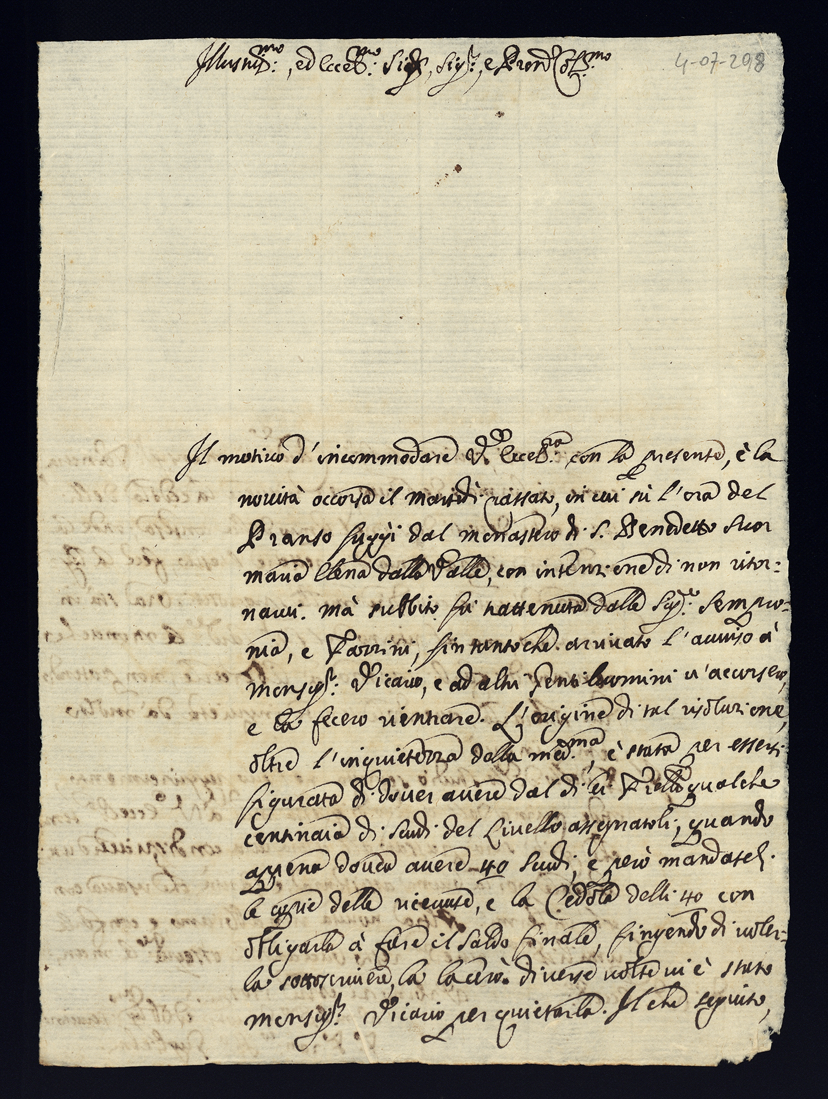 4-07-298
Illustr.mo, ed Ecce.mo Sig.r, Sig.r, e Pron Col.mo
Il motivo d'incommodare V. Ecce.za con la presente, è la
novità occorsa il martedì passato, in cui sù l'ora del
Pranso fuggì dal monastero di S. Benedetto Suor
maria Elena dalla Valle, con intenzione di non ritor=
narvi. mà subbito fù trattenuta dalle Sig.re Sempro=
nia, e Torrini, sin tanto che arrivato l'avviso à
monsig.r Vicario, e ad altri Gentiluomini v'accorsero,
e la fecero rientrare. L'origine di tal risoluzione,
oltre l'inquietezza della med.ma, è stata per essersi
figurata di dover avere dal di lei Fratello qualche
centinaia di scudi del Livello assegnatoli, quando
appena doveva avere 40 scudi, e però mandateli
le copie delle ricevute, e la Cedola delli 40 con
obligarla à fare il saldo finale, fingendo di voler=
la sottoscrivere, la lacerò. diverse volte vi è stato
monsig.r Vicario per quietarla. Il che seguito,